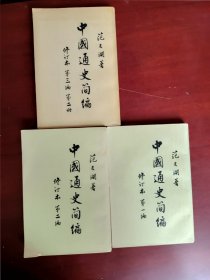 范文澜著
中國通史簡編
修订本 第三编 第二册
范文澜著
中國通史簡編
修订本 第二编
范文澜著
中國通史簡編
修订本 第一编